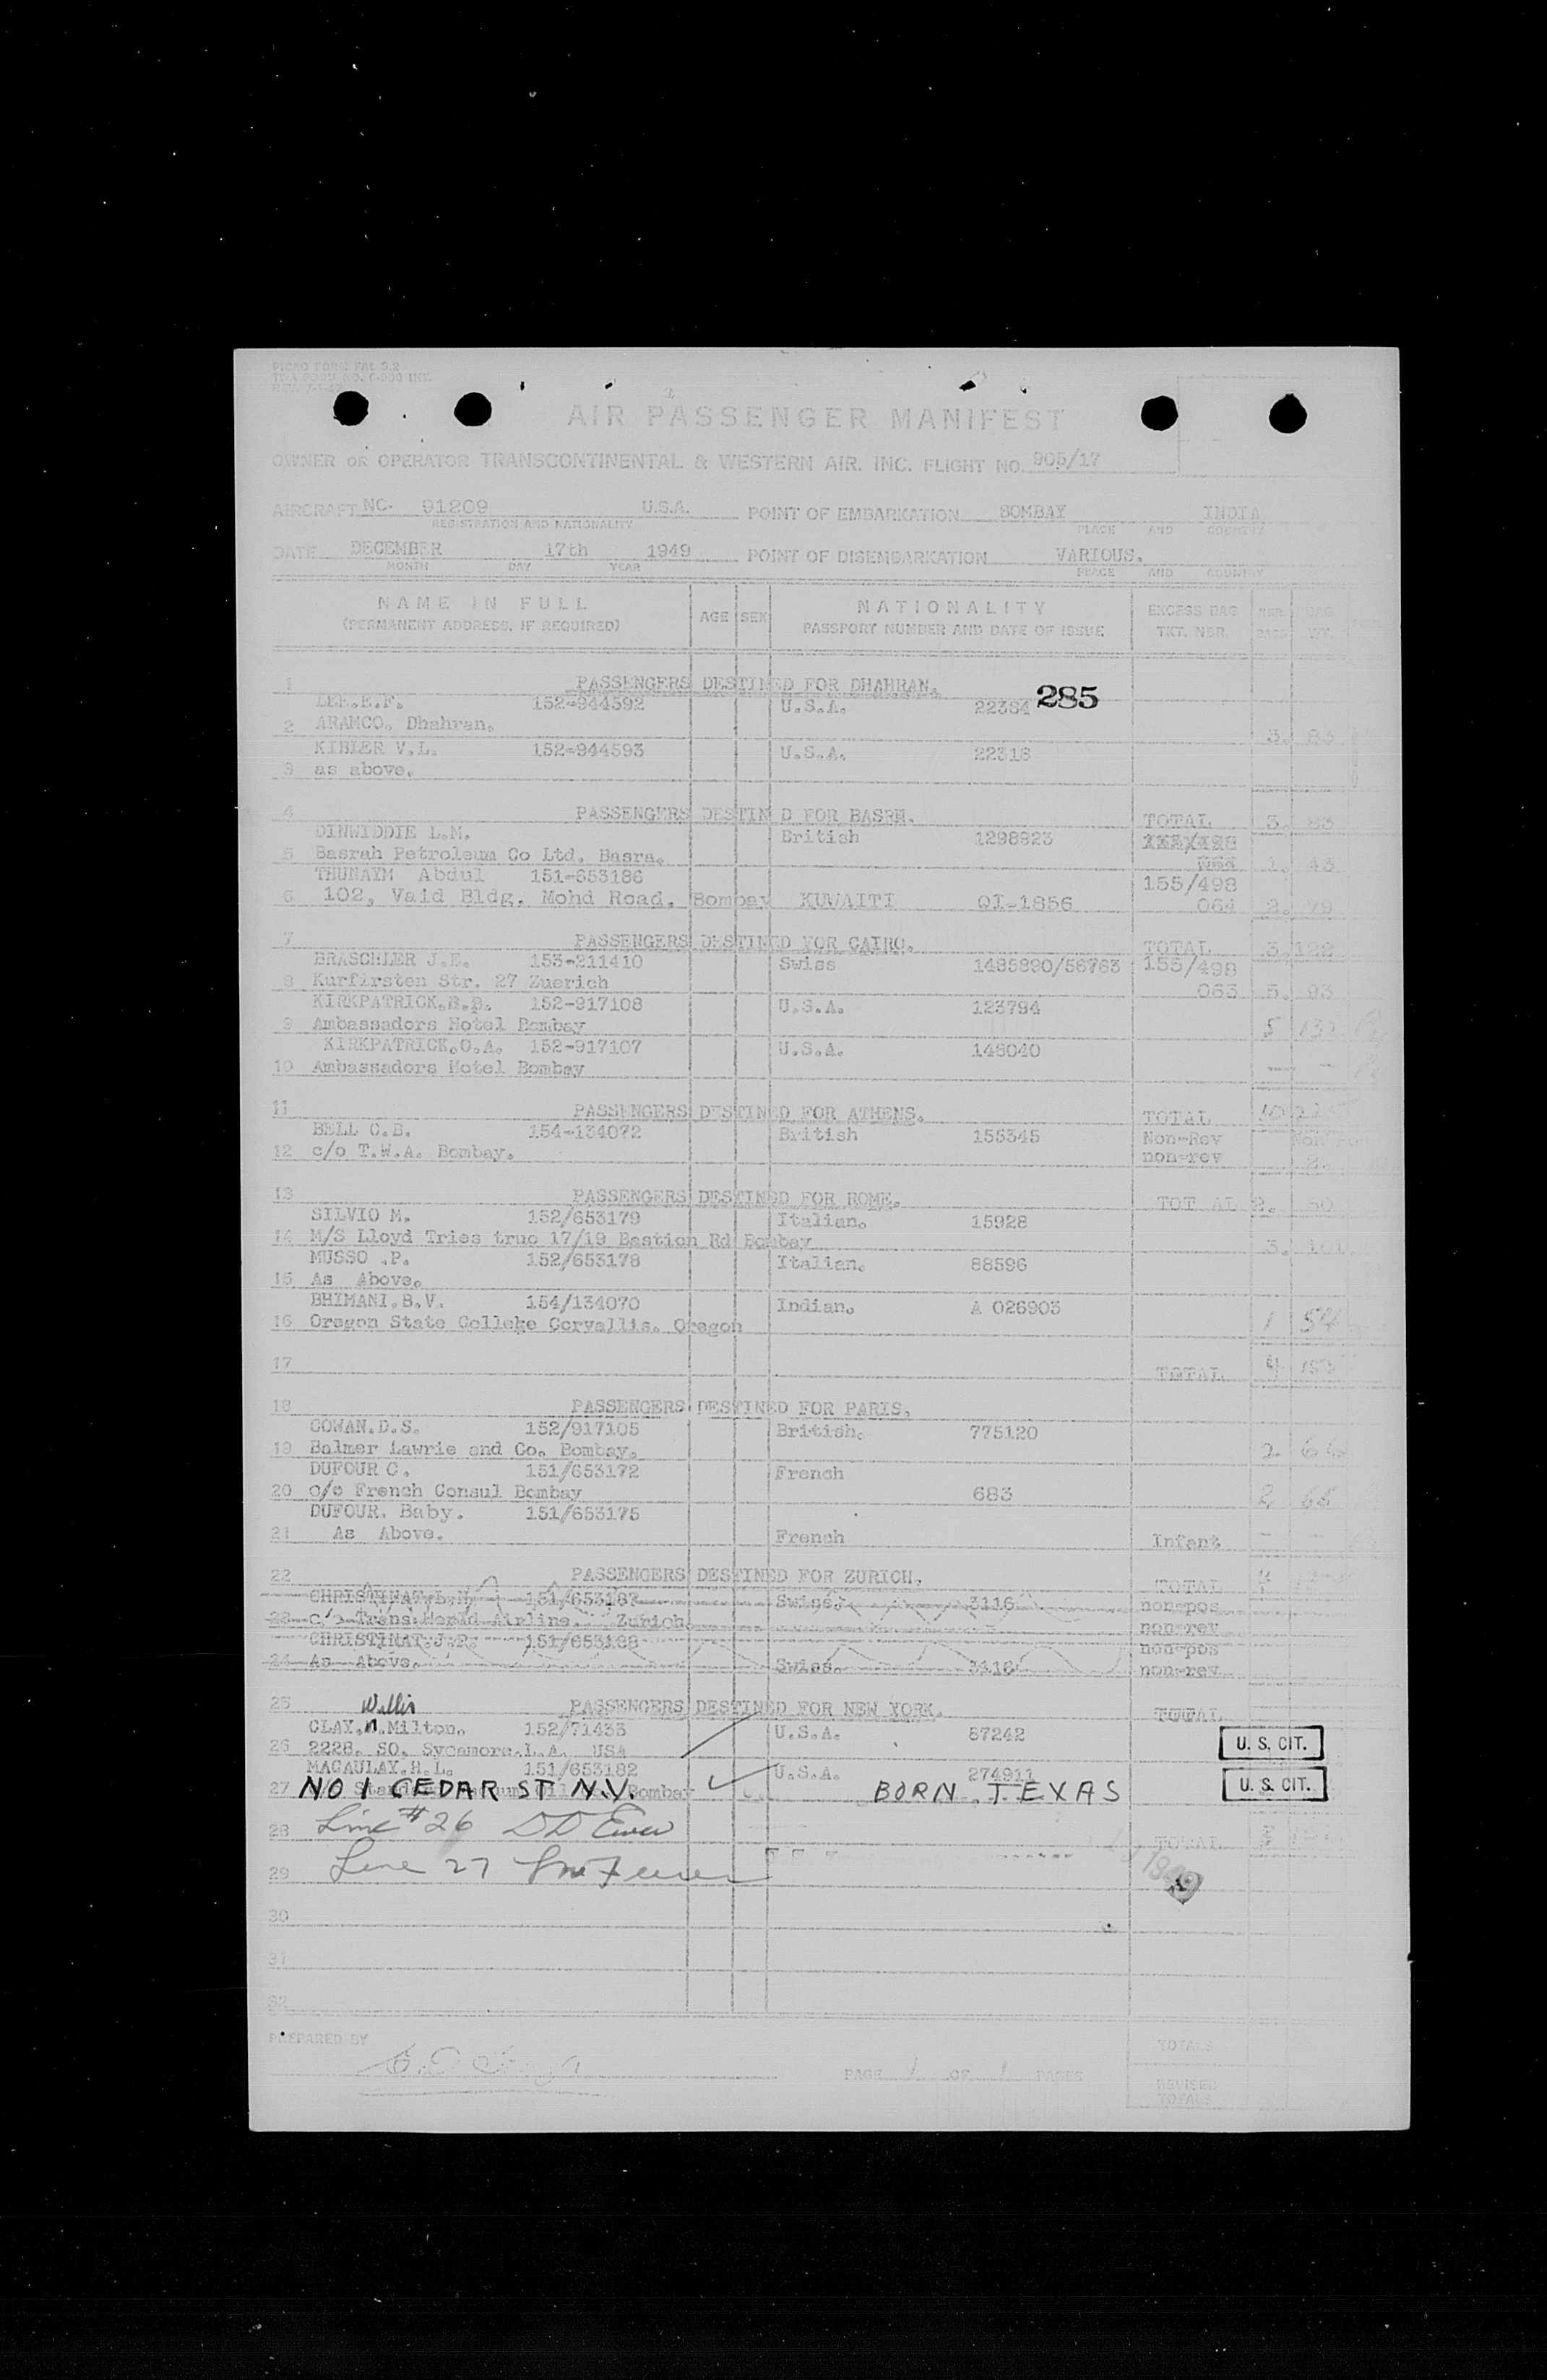 PICAO FORM FAL 9.2
AIR PASSENGER MANIFEST
OWNER OR OPERATOR TRANSCONTINENTAL & WESTERN AIR. INC. FLIGHT NO. 905/17
AIRCRAFT NC. 91209 U.S.A. POINT OF EMBARKATION BOMBAY INDIA
REGISTRATION AND NATIONALITY PLACE AND COUNTRY
DATE DECEMBER 17th 1949 POINT OF DISEMBARKATION VARIOUS.
MONTH DAY YEAR PLACE AND COUNTRY
NAME IN FULL AGE SEX NATIONALITY EXCESS BAG
(PERMANENT ADDRESS. IF REQUIRED) PASSPORT NUMBER AND DATE OF ISSUE TKT. NBR. WT.
1 PASSENGERS DESTINED FOR DHAHRAN. 285
LEE.E.F. 152-944592 U.S.A. 22384
2 ARAMCO. Dhahran. 3. 83
KIBLER V.L. 152-944593 U.S.A. 22318
3 as above.
4 PASSENGERS DESTIN D FOR BASRH. TOTAL 3. 83
DINWIDDIE L.M. British 1298923
5 Basrah Petroleum Co Ltd. Basra. 064 1. 43
THUNAYM Abdul 151-653186 155/498
6 102, Vaid Bldg. Mohd Road. Bombay KUWAITI QI-1856 064 2. 79
7 PASSENGERS DESTINED FOR CAIRO. TOTAL 3 122
BRASCHLER J.E. 153-211410 Swiss 1485890/56763 155/498
8 Kurfirsten Str. 27 Zuerich 065 5. 93
KIRKPATRICK.B.B. 152-917108 U.S.A. 123794
9 Ambassadors Hotel Bombay 5 132
KIRKPATRICK.O.A. 152-917107 U.S.A. 148040
10 Ambassadors Hotel Bombay — -
11 PASSENGERS DESTINED FOR ATHENS. TOTAL 10 225
BELL C.B. 154-134072 British 155345 Non-Rev
12 c/o T.W.A. Bombay. non-rev
13 PASSENGERS DESTINED FOR ROME. TOT AL 2. 50
SILVIO M. 152/653179 Italian. 15928
14 M/S Lloyd Tries truc 17/19 Bastion Rd Bombay 3. 101
MUSSO .P. 152/653178 Italian. 88596
15 As Above.
BHIMANI.B.V. 154/134070 Indian. A 026903
16 Oregon State College Corvallis. Oregon 1 54
17 TOTAL 4
18 PASSENGERS DESTINED FOR PARIS.
COWAN.D.S. 152/917105 British. 775120
19 Balmer Lawrie and Co. Bombay. 2
DUFOUR C. 151/653172 French
20 c/o French Consul Bombay 683 2 68
DUFOUR. Baby. 151/653175
21 As Above. French Infant — -
22 PASSENGERS DESTINED FOR ZURICH. TOTAL 4
CHRISTINAT.L.N 151/653187 Swiss. 3116 non-pos
23 c/o Trans World Airline. Zurich. non-rev
CHRISTINAT.J.P. 151/653188 non-pos
24 As Above. Swiss. 3116 non-rev
25 Willis PASSENGERS DESTINED FOR NEW YORK. TOTAL
CLAY. Milton. 152/71433 U.S.A. 87242
26 2228. SO. Sycamore.L.A. USA U. S. CIT.
MACAULAY.H.L. 151/653182 U.S.A. 274911
27 NO 1 CEDAR ST N.Y. Bombay BORN TEXAS U. S. CIT.
28 Line #26 TOTAL
29 Line 27
30
31
32
PREPARED BY TOTALS
PAGE 1 OF 1 PAGES
REVISED
TOTALS